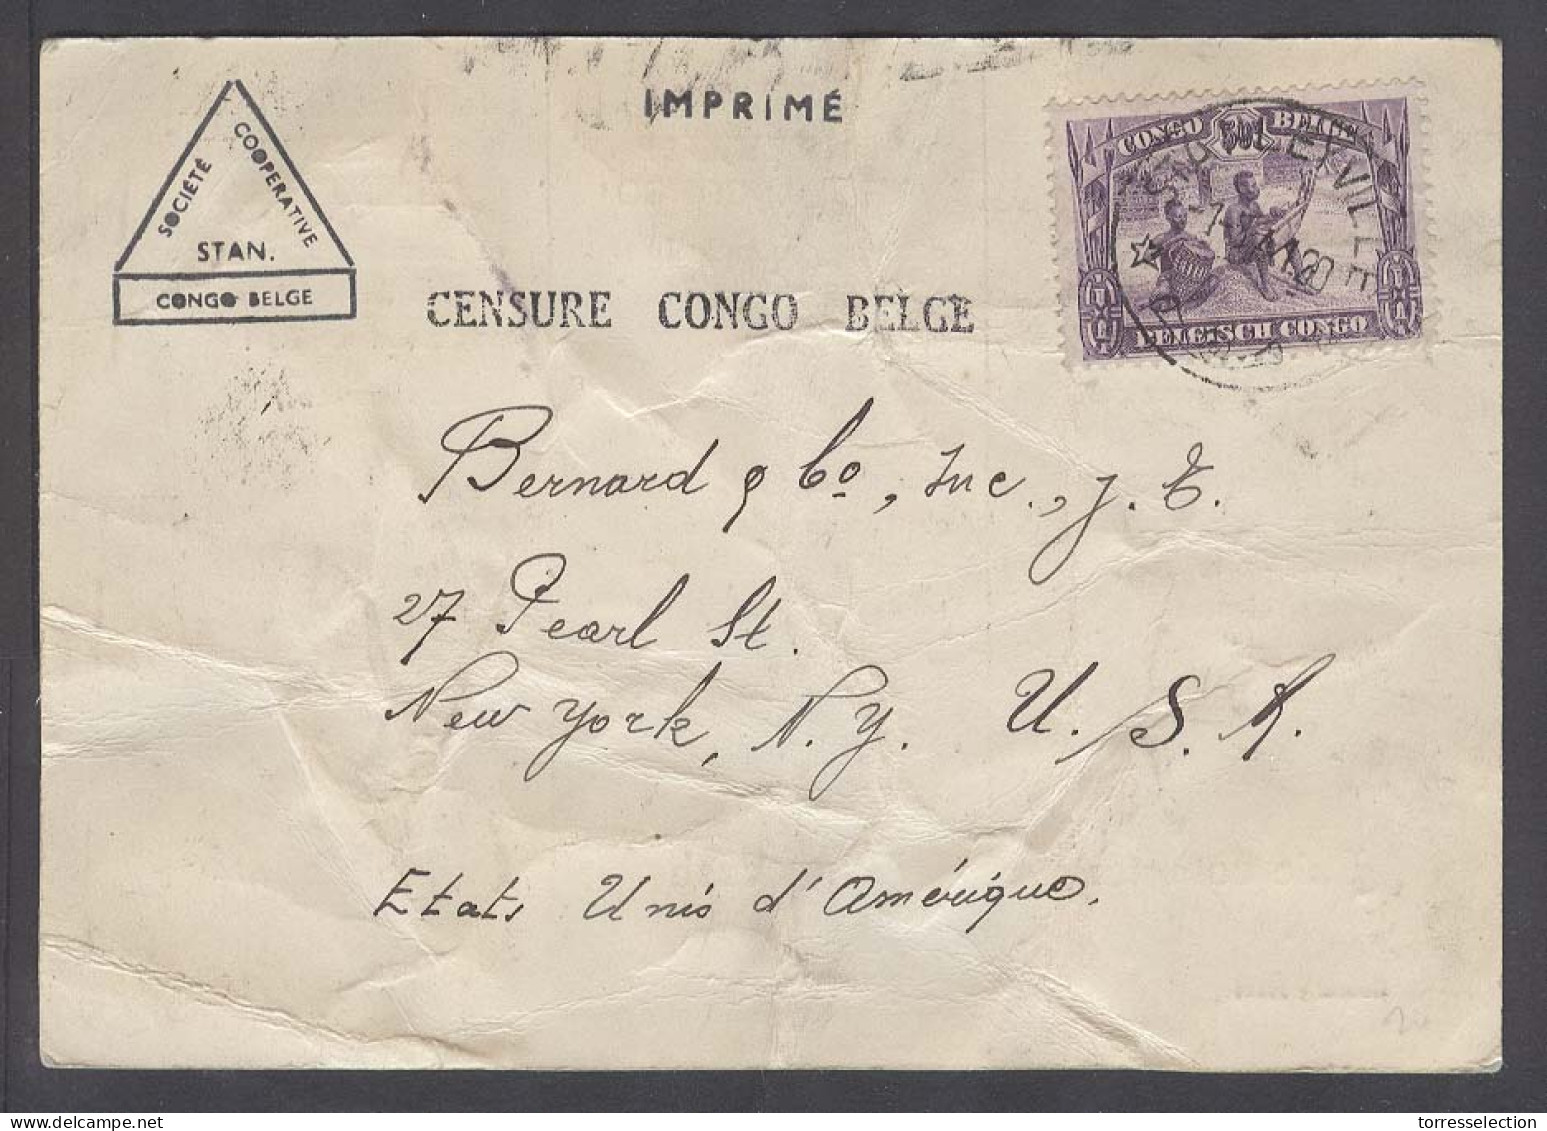 IMPRIMÉ
SOCIÉTÉ
COOPERATIVE
STAN.
CONGO BELGE
CENSURE CONGO BELGE
CONGO BELGE
BELGISCH CONGO
Bernard & Co, Inc., J. E.
27 Pearl St.
New York, N. Y. U. S. A.
Etats Unis d'Amérique.
torresselection